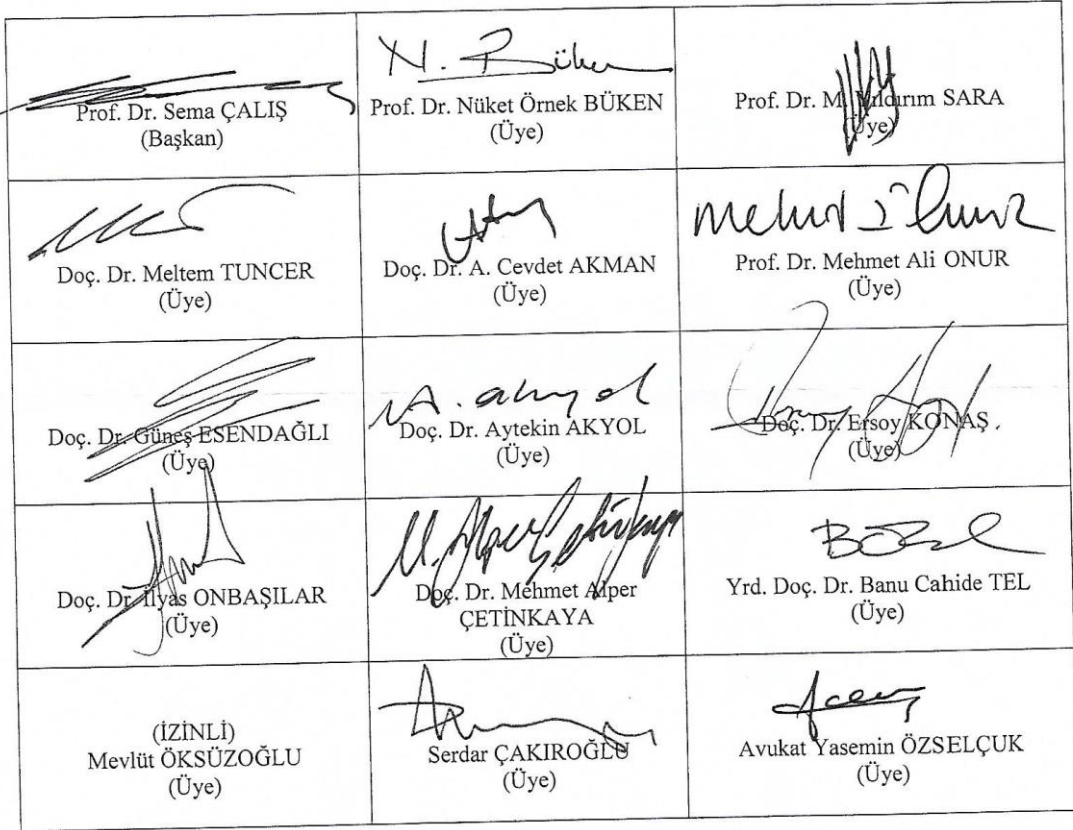 N. Büken
Prof. Dr. Sema ÇALIŞ
(Başkan)
Prof. Dr. Nüket Örnek BÜKEN
(Üye)
Prof. Dr. M. Yıldırım SARA
(Üye)
Doç. Dr. Meltem TUNCER
(Üye)
Doç. Dr. A. Cevdet AKMAN
(Üye)
Prof. Dr. Mehmet Ali ONUR
(Üye)
Doç. Dr. Güneş ESENDAĞLI
(Üye)
A. akyol
Doç. Dr. Aytekin AKYOL
(Üye)
Doç. Dr. Ersoy KONAŞ
(Üye)
Doç. Dr. İlyas ONBAŞILAR
(Üye)
M. Alper Çetinkaya
Doç. Dr. Mehmet Alper
ÇETİNKAYA
(Üye)
Yrd. Doç. Dr. Banu Cahide TEL
(Üye)
(İZİNLİ)
Mevlüt ÖKSÜZOĞLU
(Üye)
Serdar ÇAKIROĞLU
(Üye)
Avukat Yasemin ÖZSELÇUK
(Üye)